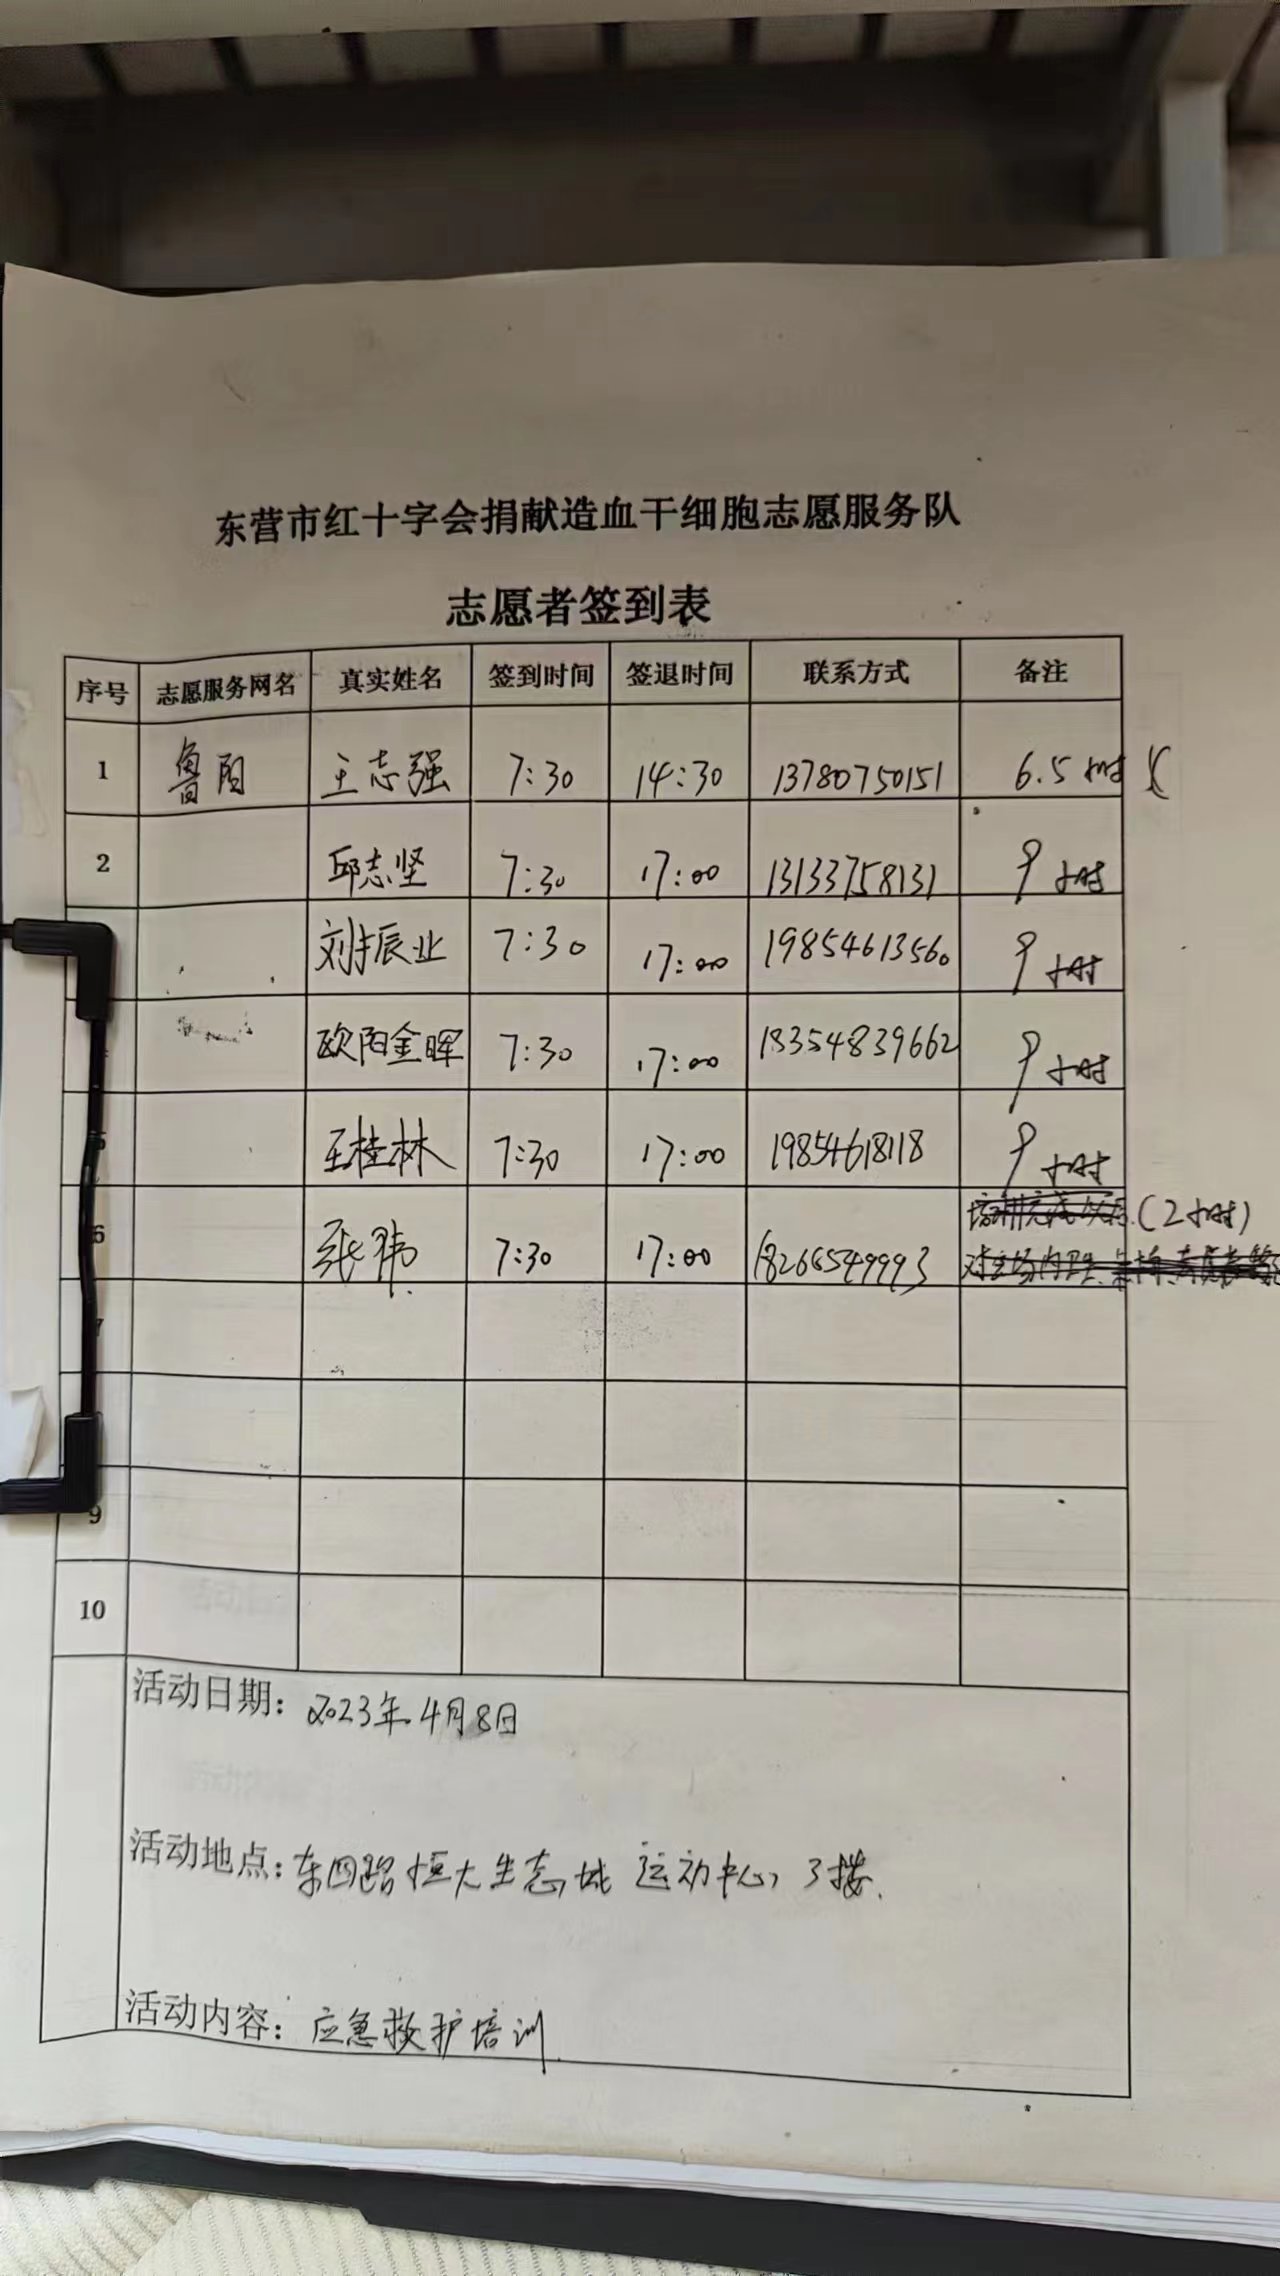 东营市红十字会捐献造血干细胞志愿服务队
志愿者签到表
序号 志愿服务网名 真实姓名 签到时间 签退时间 联系方式 备注
1 鲁阳 王志强 7:30 14:30 13780750151 6.5小时
2 邱志坚 7:30 17:00 13133758131 9小时
刘振业 7:30 17:00 19854613560 9小时
欧阳金晖 7:30 17:00 18354839662 9小时
5 王桂林 7:30 17:00 19854618118 9小时
6 张伟 7:30 17:00 18266549993 (2小时)
7
9
10
活动日期: 2023年4月8日
活动地点: 东四路恒大生态城 运动中心3楼.
活动内容: 应急救护培训